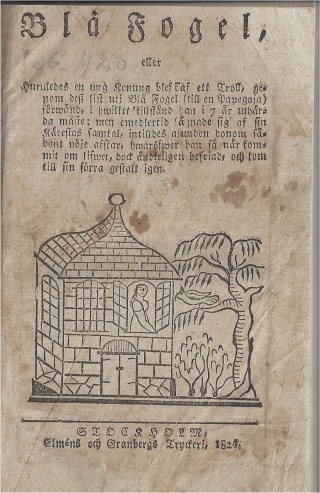 Blå Fogel,
eller
Huruledes en ung Konung blef af ett Troll, ge-
nom deß list uti Blå Fogel (till en Papegoja)
förwänd, i hwilket tillstånd han i 7 år uthär-
da måste; men emedlertid lämnade sig af sin
Kärestas samtal, intilldes afunden honom så-
dant nöje afskar, hwaröfwer han så när kom-
mit om lifwet, dock ändteligen befriad, och kom
till sin förra gestalt igen.
STOCKHOLM,
Elméns och Granbergs Tryckeri, 1824.